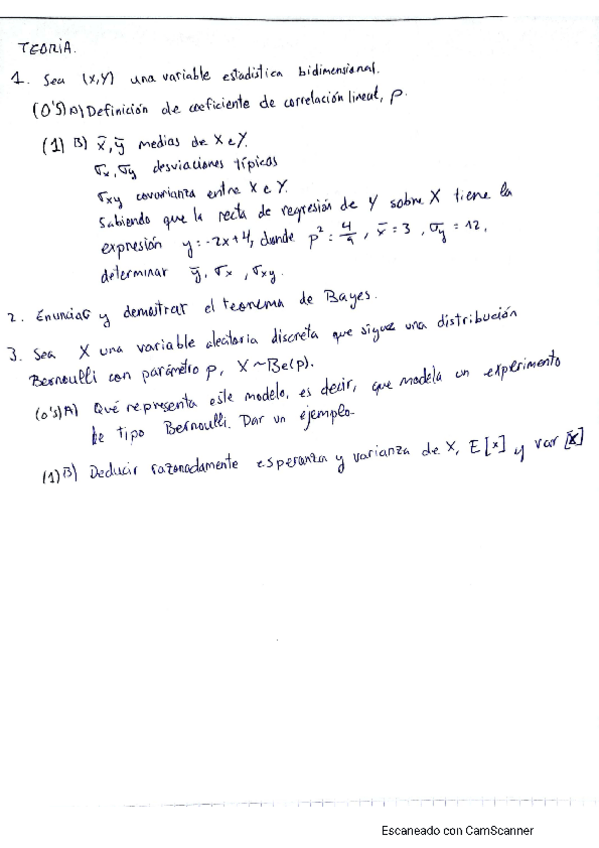 TEORIA.
1. Sea (X,Y) una variable estadística bidimensional.
(0'5) A) Definición de coeficiente de correlación lineal, ρ.
(1) B) x̄, ȳ medias de X e Y.
σx, σy desviaciones típicas
σxy covarianza entre X e Y.
Sabiendo que la recta de regresión de Y sobre X tiene la
expresión y = -2x+4, donde ρ² = 4/9, x̄ = 3, σy = 12,
determinar ȳ, σx, σxy.
2. Enunciar y demostrar el teorema de Bayes.
3. Sea X una variable aleatoria discreta que sigue una distribución
Bernoulli con parámetro p, X ~ Be(p).
(0'5) A) Qué representa este modelo, es decir, que modela un experimento
de tipo Bernoulli. Dar un ejemplo.
(1) B) Deducir razonadamente esperanza y varianza de X, E[x] y var[X]
Escaneado con CamScanner